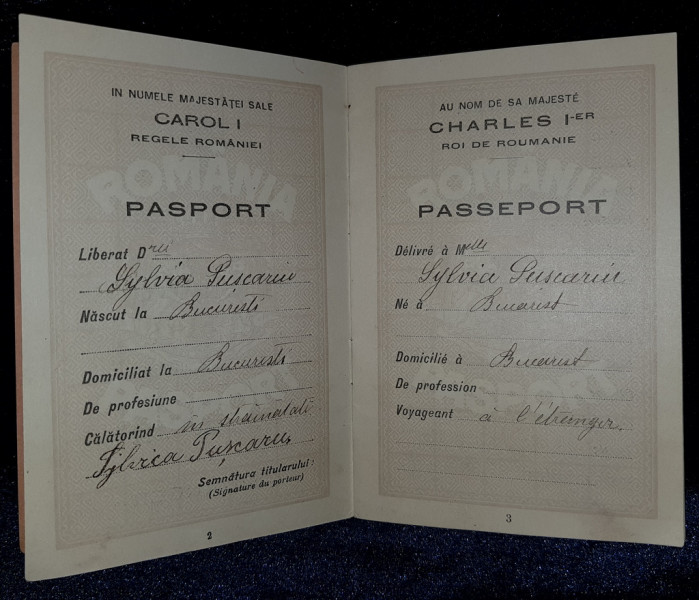 IN NUMELE MAJESTĂȚEI SALE
CAROL I
REGELE ROMÂNIEI
ROMÂNIA
PASPORT
Liberat D rei
Sylvia Puscariu
Născut la Bucuresti
Domiciliat la Bucuresti
De profesiune
Călătorind in strainatate
Sylvia Pușcariu
Semnătura titularului:
(Signature du porteur)
2
AU NOM DE SA MAJESTÉ
CHARLES I-ER
ROI DE ROUMANIE
ROMÂNIA
PASSEPORT
Délivré à M elle
Sylvia Puscariu
Né à Bucarest
Domicilié à Bucarest
De profession
Voyageant à l'étranger.
3